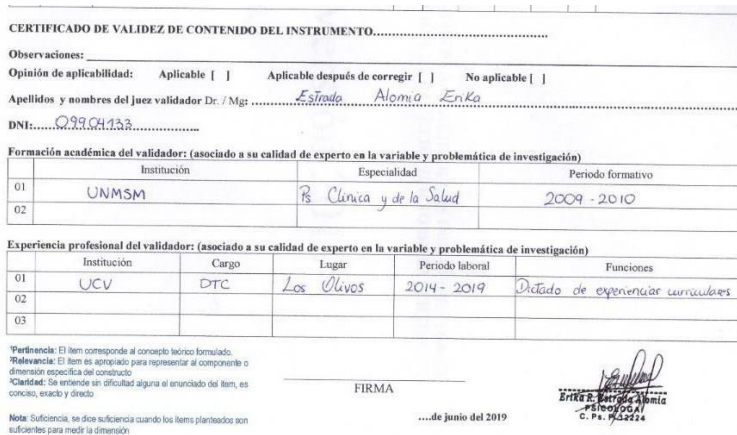 CERTIFICADO DE VALIDEZ DE CONTENIDO DEL INSTRUMENTO................................................
Observaciones:
Opinión de aplicabilidad: Aplicable [ ] Aplicable después de corregir [ ] No aplicable [ ]
Apellidos y nombres del juez validador Dr. / Mg: Estrada Alomia Erika
DNI:.....09904133
Formación académica del validador: (asociado a su calidad de experto en la variable y problemática de investigación)
Institución Especialidad Periodo formativo
01 UNMSM Ps Clínica y de la Salud 2009 - 2010
02
Experiencia profesional del validador: (asociado a su calidad de experto en la variable y problemática de investigación)
Institución Cargo Lugar Periodo laboral Funciones
01 UCV DTC Los Olivos 2014 - 2019 Dictado de experiencias curriculares
02
03
¹Pertinencia: El ítem corresponde al concepto teórico formulado.
²Relevancia: El ítem es apropiado para representar al componente o
dimensión específica del constructo
³Claridad: Se entiende sin dificultad alguna el enunciado del ítem, es
conciso, exacto y directo
Nota: Suficiencia, se dice suficiencia cuando los ítems planteados son
suficientes para medir la dimensión
FIRMA
....de junio del 2019
Erika R. Estrada Alomia
PSICOLOGA
C. Ps. P. 12224